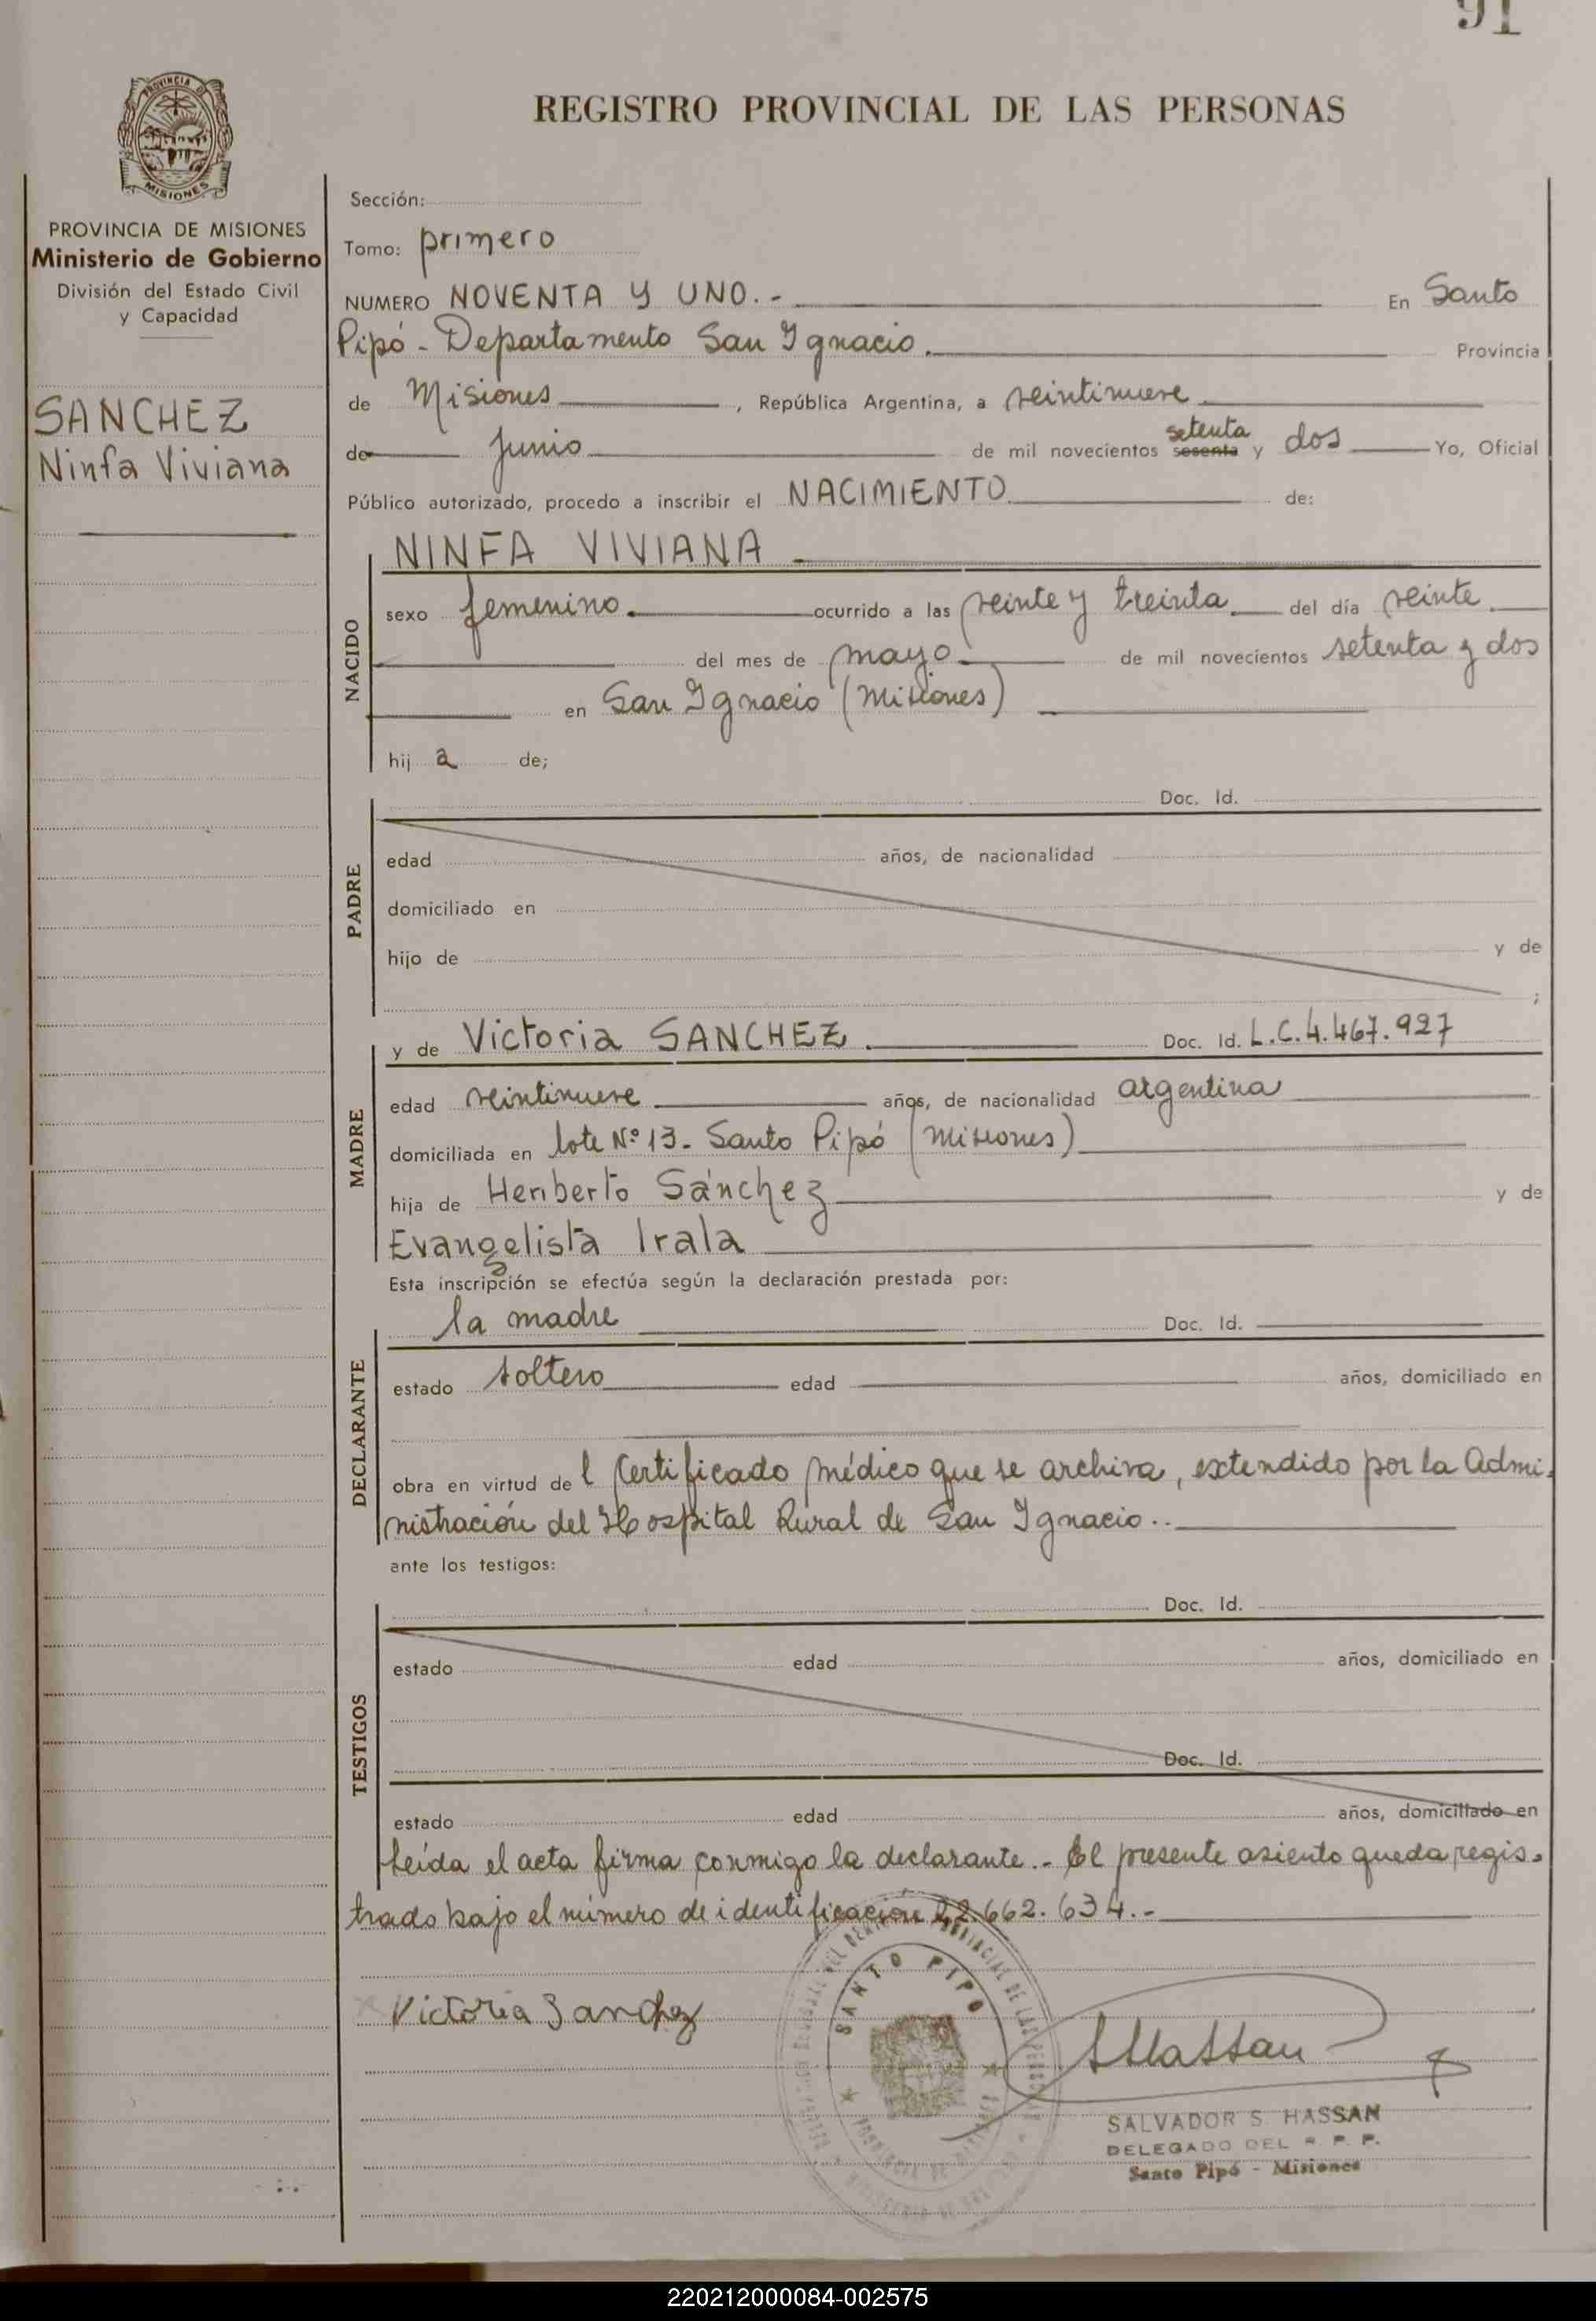 91
REGISTRO PROVINCIAL DE LAS PERSONAS
PROVINCIA
MISIONES
PROVINCIA DE MISIONES
Ministerio de Gobierno
División del Estado Civil
y Capacidad
SANCHEZ
Ninfa Viviana
Sección:
Tomo: primero
NUMERO NOVENTA Y UNO.- En Santo
Pipó - Departamento San Ignacio. Provincia
de Misiones, República Argentina, a veintinueve
de Junio de mil novecientos setenta sesenta y dos Yo, Oficial
Público autorizado, procedo a inscribir el NACIMIENTO de:
NACIDO
NINFA VIVIANA
sexo femenino. ocurrido a las veinte y treinta del día veinte
del mes de mayo de mil novecientos setenta y dos
en San Ignacio (Misiones)
hij a de;
PADRE
Doc. Id.
edad años, de nacionalidad
domiciliado en
hijo de y de
;
MADRE
y de Victoria SANCHEZ. Doc. Id. L.C. 4.467.927
edad veintinueve años, de nacionalidad argentina
domiciliada en lote Nº 13- Santo Pipó (Misiones)
hija de Heriberto Sánchez y de
Evangelista Irala
Esta inscripción se efectúa según la declaración prestada por:
DECLARANTE
la madre Doc. Id.
estado soltero edad años, domiciliado en
obra en virtud de l Certificado médico que se archiva, extendido por la Admi-
nistración del Hospital Rural de San Ignacio..
ante los testigos:
TESTIGOS
Doc. Id.
estado edad años, domiciliado en
Doc. Id.
estado edad años, domiciliado en
Leída el acta firma conmigo la declarante.- El presente asiento queda regis-
trado bajo el número de identificación 22.662.634.-
Victoria Sanchez
SANTO PIPO
SALVADOR S. HASSAN
DELEGADO DEL R. P. P.
Santo Pipó - Misiones
220212000084-002575